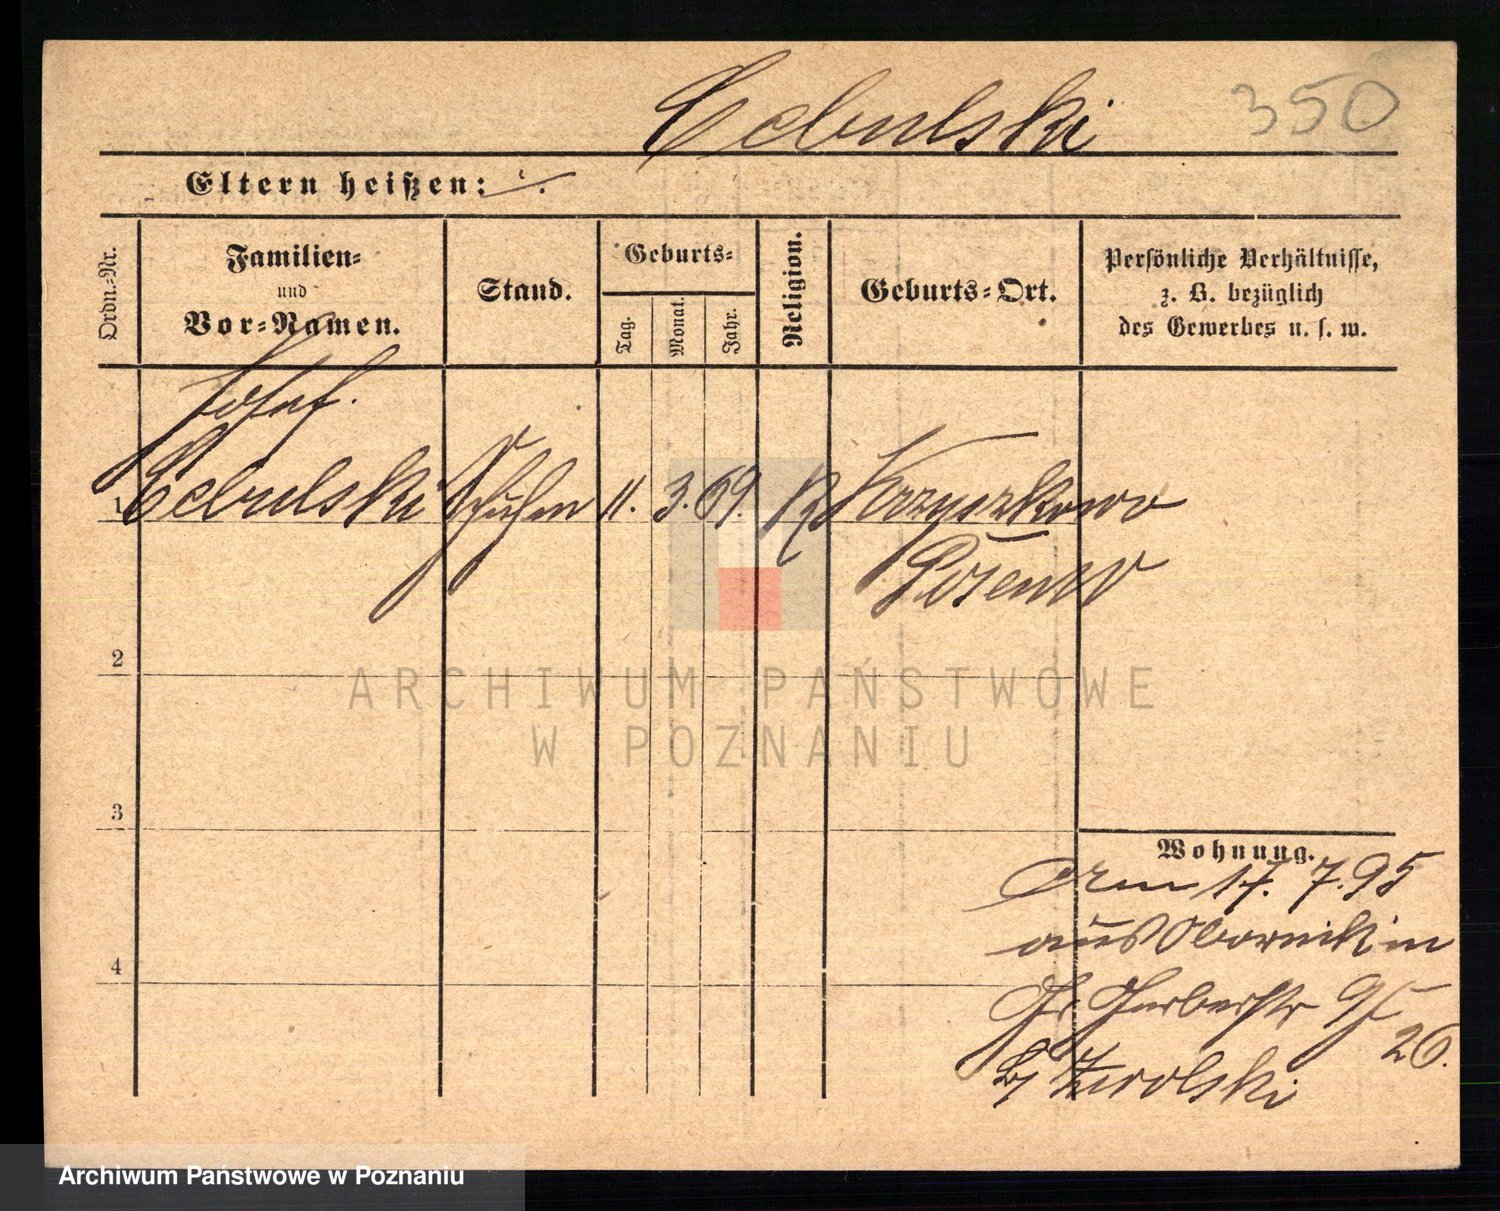 Cebulski 350
Eltern heißen: ./.
Ordn.-Nr.
Familien-
und
Vor-Namen.
Stand.
Geburts-
Tag.
Monat.
Jahr.
Religion.
Geburts-Ort.
Persönliche Verhältnisse,
z. B. bezüglich
des Gewerbes u. s. w.
Josef
1 Cebulski 11. 3. 69.
2
3
4
Wohnung.
17. 7. 95
aus Obornik in
Gr. Gerberstr
26.
ARCHIWUM PAŃSTWOWE
W POZNANIU
Archiwum Państwowe w Poznaniu